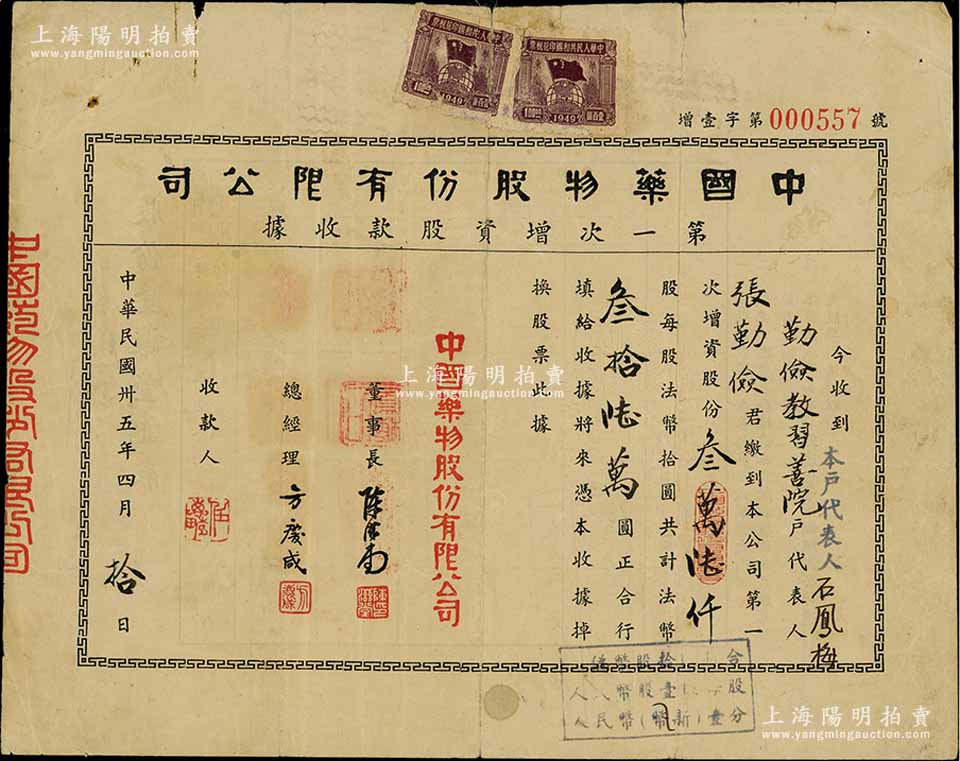 上海陽明拍賣
www.yangmingauction.com
中華人民共和國印花稅票
1949
中華人民共和國印花稅票
1949
增壹字第000557號
中國藥物股份有限公司
第一次增資股款收據
今收到
本戶代表人石鳳梅
勤儉教習善院戶代表人
張勤儉君繳到本公司第一
次增資股份叁萬陸仟
股每股法幣拾圓共計法幣
叁拾陸萬圓正合行
填給收據將來憑本收據掉
換股票此據
中國藥物股份有限公司
董事長
總經理方慶咸
收款人
中華民國卅五年四月拾日
上海陽明拍賣
www.yangmingauction.com
人民幣(新幣)壹分
上海陽明拍賣
www.yangmingauction.com